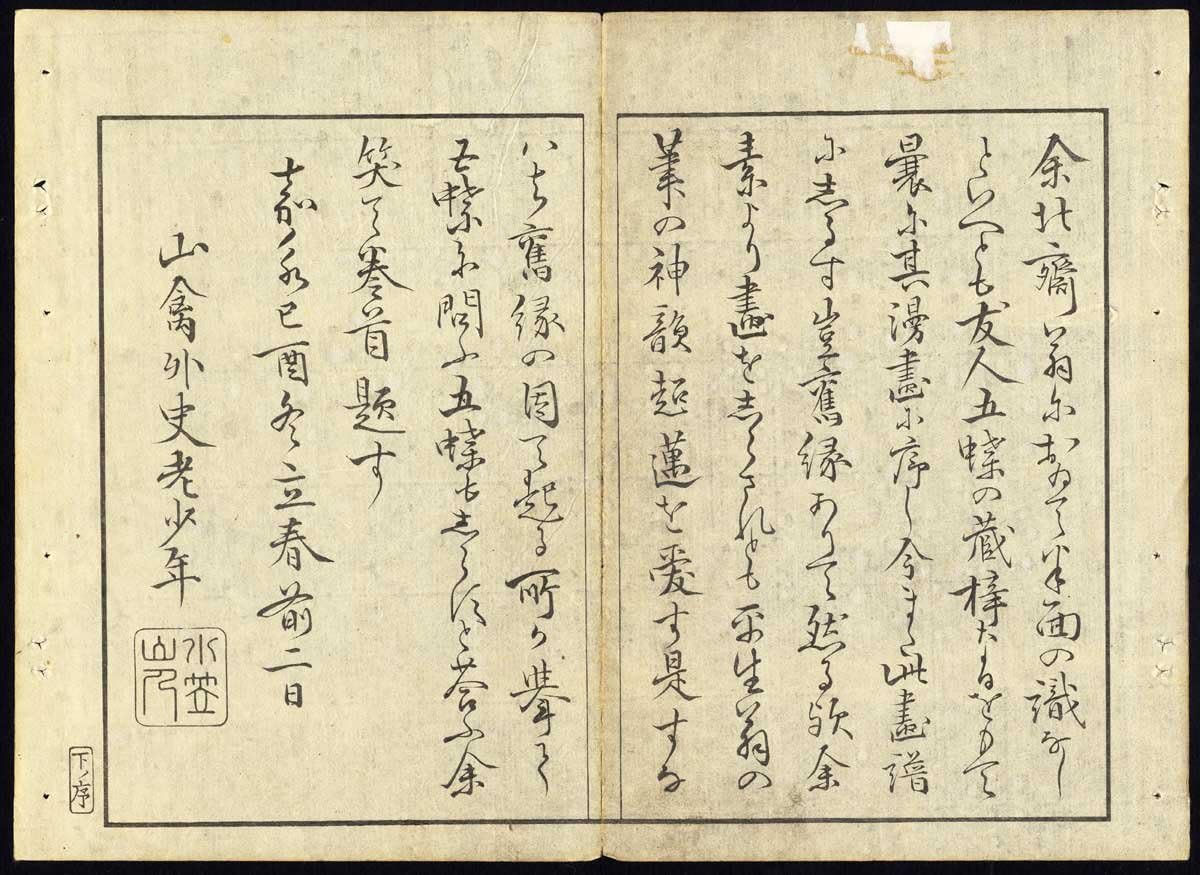 余北齋翁におゐて半面の識なし
といへとも友人五蝶の蔵梓たるをもて
曩に其漫畫に序し今また此畫譜
に志るす豈舊縁ありて然る歟余
素より畫を志らされとも平生翁の
筆の神韻超邁を愛す是すな
ハち舊縁の因て起る所か挙て
五蝶に問ふ五蝶も志らすと荅ふ余
笑て巻首題す
嘉永己酉冬立春前二日
山禽外史老少年
水竝山人
下ノ序